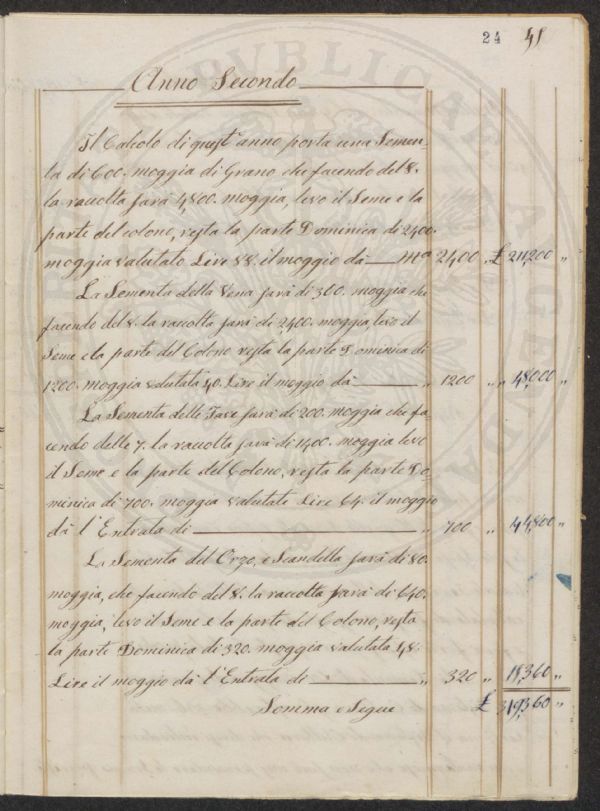 24 41
Anno Secondo
Il Calcolo di quest'anno porta una Semen-
ta di 600. moggia di Grano che facendo del 8.
la raccolta farà 4,800. moggia, levo il Seme e la
parte del colono, resta la parte Dominica di 2400.
moggia valutato Lire 88. il moggio dà — M.a 2400 „ £ 211,200 „
La Sementa della Vena farà di 300. moggia che
facendo del 8. la raccolta farà di 2,400. moggia, levo il
Seme e la parte del Colono resta la parte Dominica di
1200. moggia valutata 40. Lire il moggio dà — „ 1200 „ „ 48,000 „
La Sementa delle Fave farà di 200. moggia che fa-
cendo delle 7. la raccolta farà di 1400. moggia levo
il Seme e la parte del Colono, resta la parte Do-
minica di 700. moggia valutate Lire 64. il moggio
dà l'Entrata di — „ 700 „ 44,800 „
La Sementa del Orzo, e Scandella farà di 80.
moggia, che facendo del 8. la raccolta farà di 640.
moggia, levo il Seme e la parte del Colono, resta
la parte Dominica di 320. moggia valutata 48.
Lire il moggio dà l'Entrata di — „ 320 „ 15,360 „
Somma e Segue £ 319,360 „